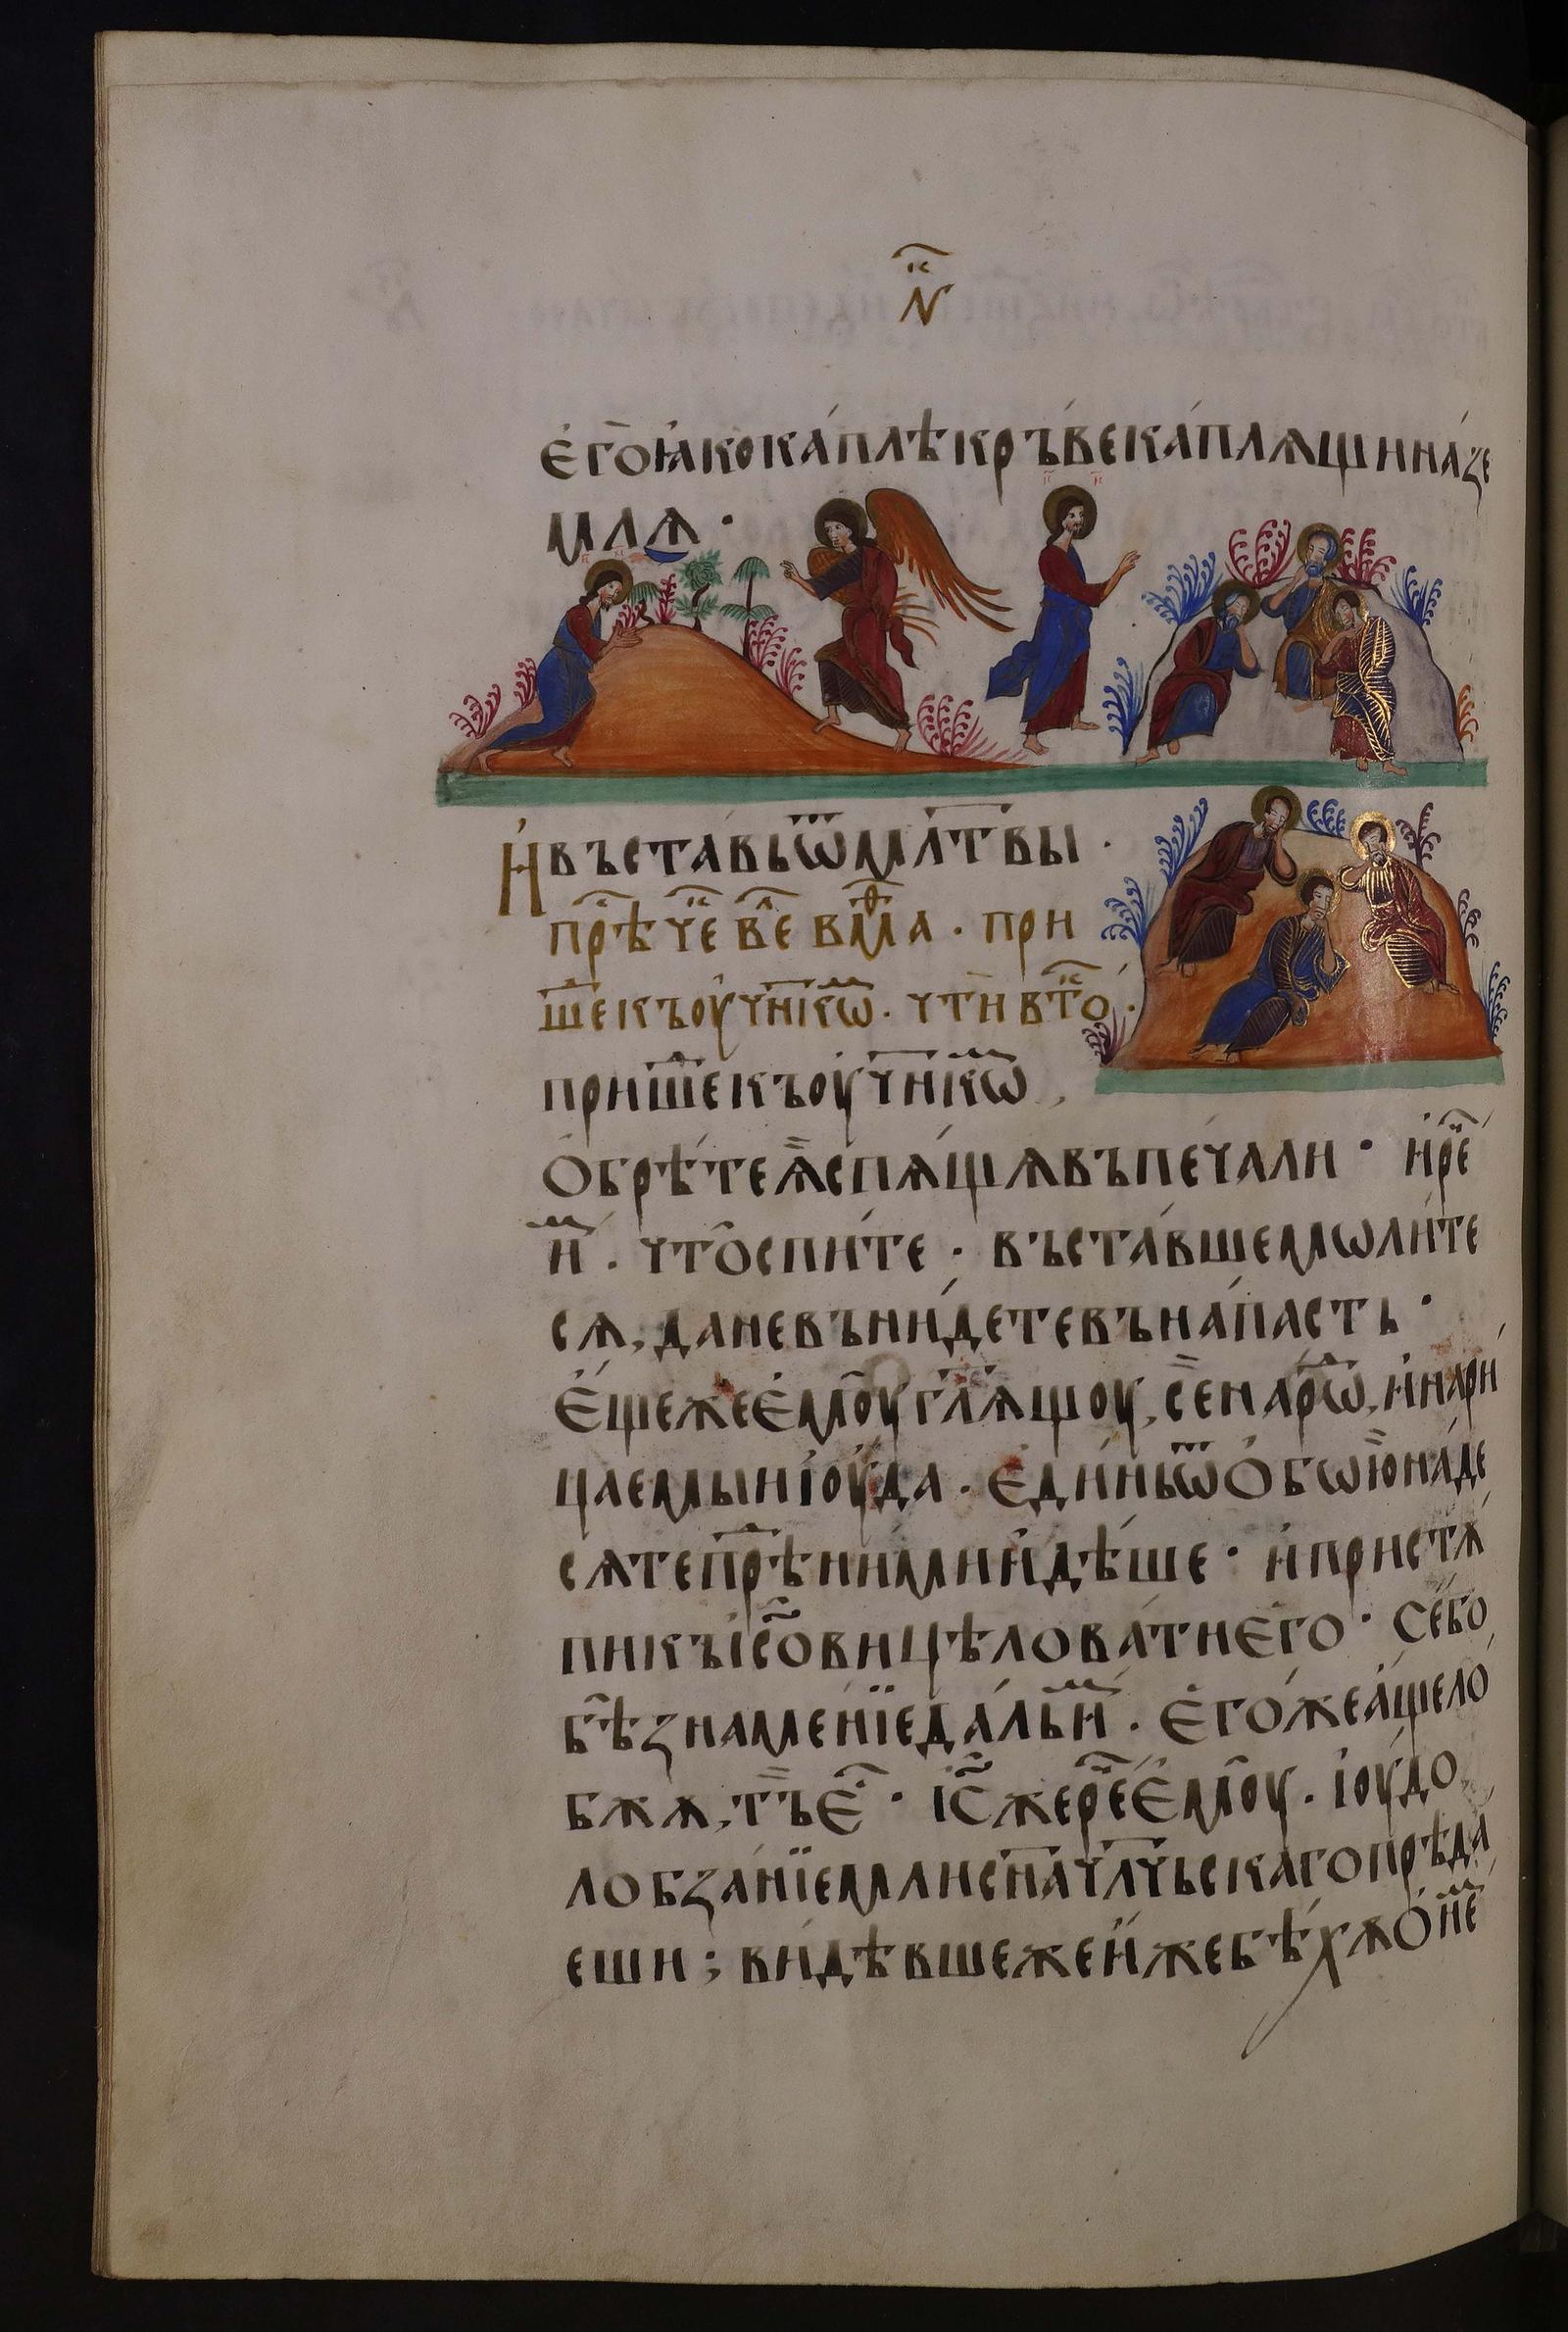 н҃к
е҆го̀ ꙗ҆ко ка́плѣ кръ́ве ка́плѧщи на́ зе
млѧ ·
И҆ въста́вь ѿ мл҃твы ·
прⷣѣ чеⷦ҇ веⷧ҇ в мⷠ҇а · при
шеⷣ къ оу҆ чн҃ікѡⷨ · чти в тоⷦ҇ ·
пришеⷣ къ оу҆ чн҃ікѡⷨ ,
Ѻбрѣ́те ѧ҆̀ спѧ́щѧ въ печали · и҆ реⷱ҇
иⷨ · что̀ спи́те · въста́вше мѡли́те
сѧ , да не въни́дете въ на́пасть ·
Е҆ще же е҆моу̀ гл҃ѧщоу , се̏ нарѡⷣ , и҆ нари
цаемыи і҆оу́да · е҆ди́нь ѿ ѻ҆бѡю̀ на́ де
сѧте преⷣ ни́ми и҆дѣ́ше · и҆ пристѫ
пи къ і҆с҃ови цѣлова́ти е҆го̀ · Се́ бо
бѣ̀ зна́менїе да́ль иⷨ · Е҆го́же а҆́ще ло
бжѫ , тъ̏ еⷭ҇ · І҆с҃ же реⷱ҇ е҆моу̀ . і҆оу́до
лобза́нїемь ли сн҃а чл҃чьскаго прѣда
еши ; ви́дѣвше же и҆̀же бѣ́хѫ ѻ҆ неⷨ